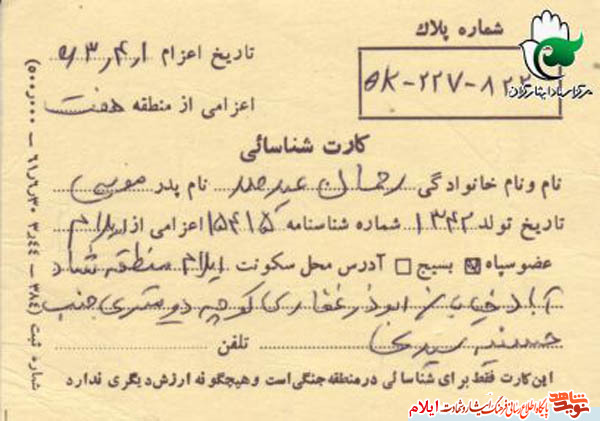 شماره پلاک
مرکز اسناد ایثارگران
تاریخ اعزام
اعزامی از منطقه هفت
کارت شناسائی
نام و نام خانوادگی رحمان نام پدر موسی
تاریخ تولد ۱۳۴۲ شماره شناسنامه ۱۵۴۱۵ اعزامی از ایلام
عضو سپاه بسیج آدرس محل سکونت ایلام منطقه شاد
آباد خ ابوذر غفاری کوچه متری جنب
حسینیه تلفن
این کارت فقط برای شناسائی در منطقه جنگی است و هیچگونه ارزش دیگری ندارد
شماره ثبت (۳۸۴ – ۳٫۴۴ ۶۱٫۶٫۳۰ – ۵۰۰٫۰۰۰)
نوید شاهد پایگاه اطلاع رسانی فرهنگ ایثار و شهادت ایلام